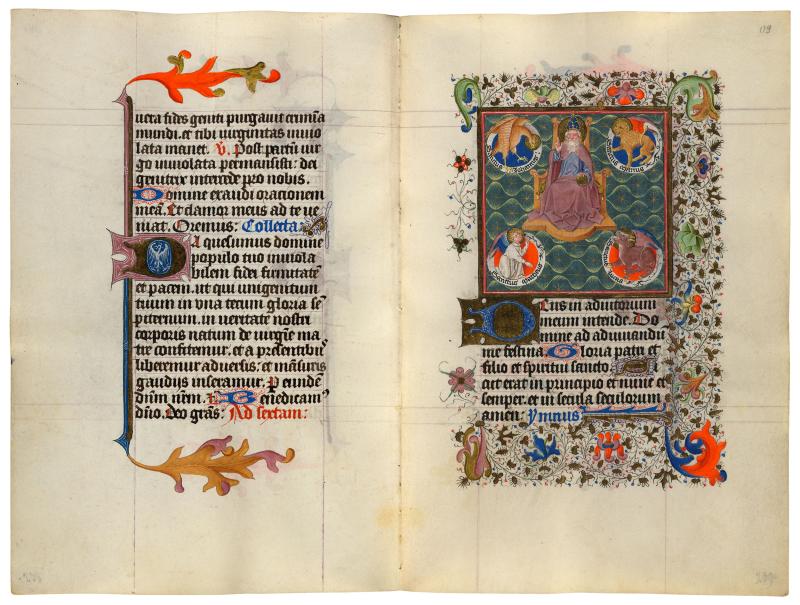 uera fides geniti purgauit crimina
mundi. et tibi uirginitas inuio
lata manet. V. Post partū uir
go inuiolata permansisti: dei
genitrix intercede pro nobis.
Domine exaudi orationem
meā. Et clamor meus ad te ue
niat. Oremus: Collecta
Da quesumus domine
populo tuo inuiola
bilem fidei firmitatē
et pacem. ut qui unigenitum
tuum in vna tecum gloria sē
piternum. in ueritate nostri
corporis natum de uirgīe ma
tre confitemur. et a presentibus
liberemur aduersis. et māsuris
gaudijs inseramur. P eundē
dn̄m nr̄m. Benedicam
dn̄o. Deo gr̄as: Ad sextam:
Deus in adiutorium
meum intende. Do
mine ad adiuuandū
me festina. Gloria patri et
filio et spiritui sancto
icut erat in principio et nunc et
semper. et in secula seculorum
amen: Ymnus